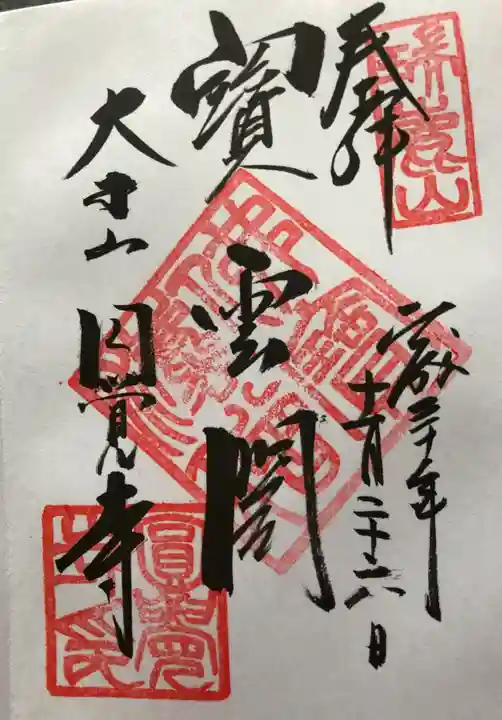 奉拜
瑞鹿山
平成三十年
十一月二十六日
寶雲閣
大本山
円覚寺
圓覺
寺印